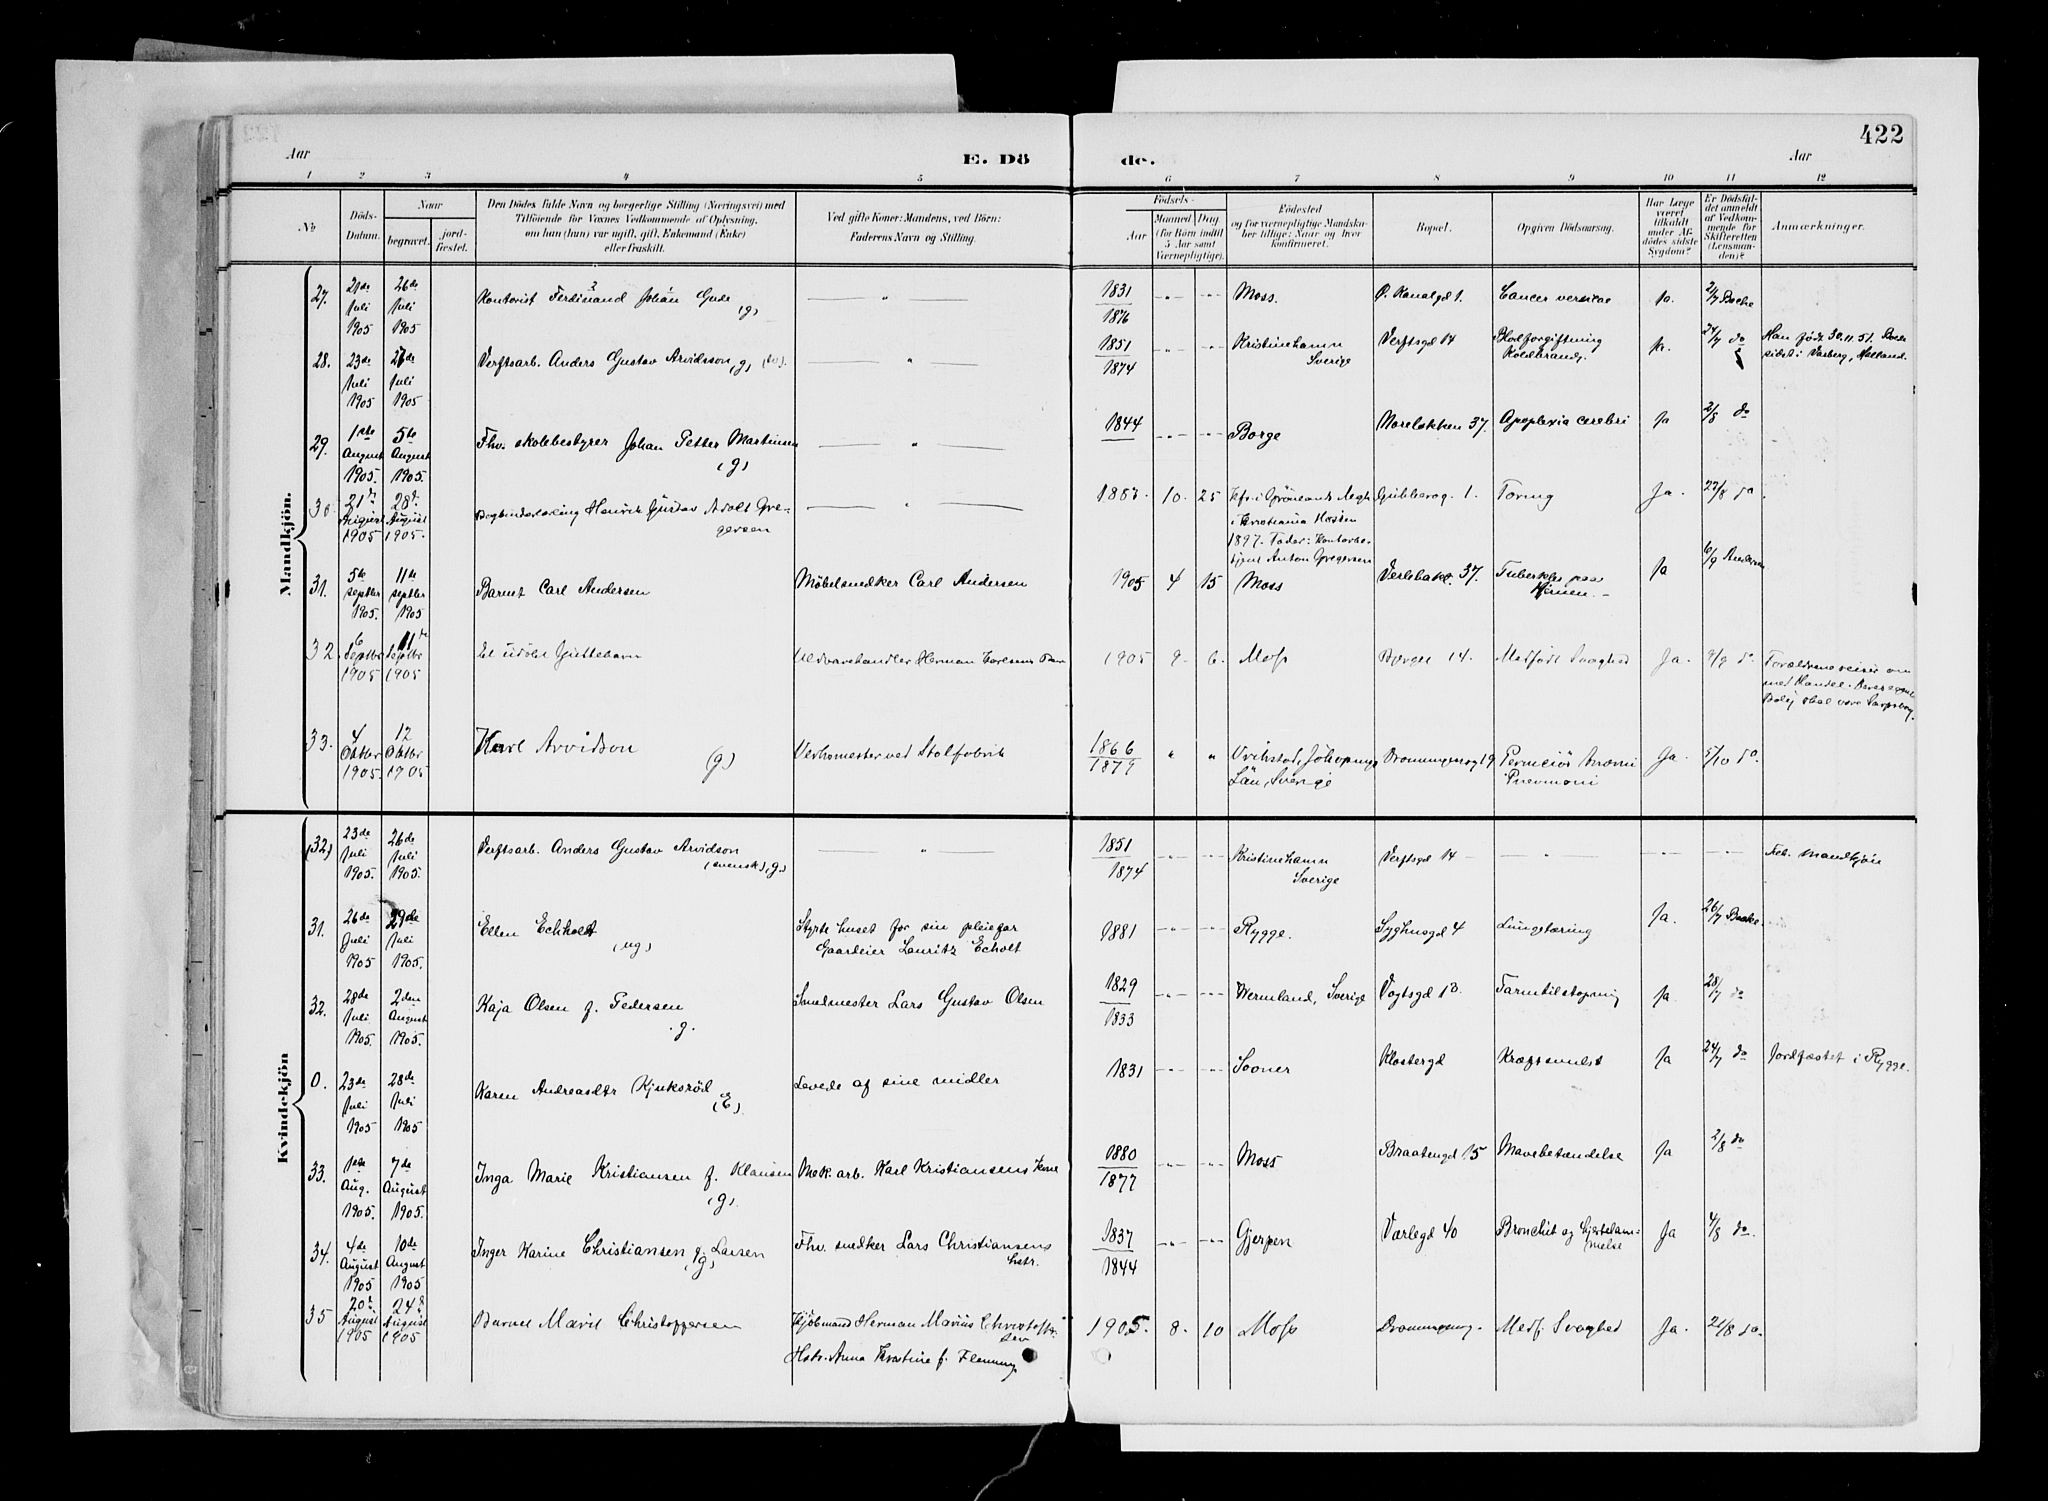 422
Aar
E. Dö
de.
Aar
1 2 3 4 5 6 7 8 9 10 11 12
No
Döds-
Datum.
Naar
begravet.
jord-
fæstet.
Den Dödes fulde Navn og borgerlige Stilling (Næringsvei) med
Tilföiende for Voxnes Vedkommende af Oplysning,
om han (hun) var ugift, gift, Enkemand (Enke)
eller fraskilt.
Ved gifte Koner: Mandens, ved Börn:
Faderens Navn og Stilling.
Födsels-
Aar
Maaned
Dag
(for Börn indtil
5 Aar samt
Værnepligtige).
Födested
og for værnepligtige Mandska-
ber tillige: Naar og hvor
konfirmeret.
Bopæl.
Opgiven Dödsaarsag.
Har Læge
været
tilkaldt
under Af-
dödes sidste
Sygdom?
Er Dödsfal-
det anmeldt
af Vedkom-
mende for
Skifteretten
(Lensman-
den)?
Anmærkninger.
Mandkjön.
27. 21de Juli 1905 26de Juli 1905 Kontorist Ferdinand Johan Gude (g) 1831 1876 Moss. Ø. Kanalgd 1. Cancer vesicae ja. 21/7 Bache
28. 23de Juli 1905 27de Juli 1905 Verftsarb. Anders Gustav Arvidsson (g) 1851 1874 Kristinehamn Sverige Verftsgd 14 Blodforgiftning Koldbrand. ja. 24/7 do Han född 30.11.51. i Varberg, Halland.
29. 1ste August 1905. 5te August 1905. Fhv. skolebestyrer Johan Petter Martinsen (g) 1844 Borge 37. Apoplexia cerebri ja 2/8 do
30 21de August 1905 28de August 1905. Bogbinderlærling Henrik Gustav Adolf Gregersen 10. 25 Kfr. i Grönlands Mgh. i Kristiania Hösten 1897. Fader: Kontorbetjent Anton Gregersen 1. Tæring Ja. 22/8 do
31. 5te septber 1905. 11te septber 1905 Barnet Carl Andersen Möbelsnedker Carl Andersen 1905 4 15 Moss 37. Tuberkler paa Hjernen. ja 6/9 Andersen
32. 6 Septbr 1905 11te Septbr 1905 Et udöbt Guttebarn Uldvarehandler Herman 1905 9. 6. Moss 14. Medfödt Svaghed Ja. 9/9 do. Forældrene reiser om med Handel. skal være Sarpsborg.
33. 4 Oktbr 1905. 12 Oktbr 1905 Karl Arvidson (g) Verksmester ved Stolfabrik 1866 1879 Län, Sverige Dronningensg 19 Perniciös Anæmi Pneumoni Ja. 5/10 do.
Kvindekjön
(32) 23de Juli 1905. 26de Juli 1905. Verftsarb. Anders Gustav Arvidson (svensk) (g.) 1851 1874 Kristinehamn Sverige Verftsgd 14 Feb. Mandkjön
31. 26de Juli 1905 29de Juli 1905. Ellen Echholt (ug) Styrte huset for sin pleiefar Gaardeier Lauritz Echolt 1881 Rygge. Syghusgd 4 Lungetæring Ja. 26/7 Bache.
32. 28de Juli 1905. 2den August 1905. Kaja Olsen f. Pedersen .g. Smedmester Lars Gustav Olsen 1829 1833 Wermland, Sverige Vogtsgd 13. Tarmtilstopning ja. 28/7 do
0. 23de Juli 1905 28de Juli 1905 Karen Andreasdtr Kjuksröd (E) Levede af sine midler 1831 Sooner Klostergd Kræftsvulst ja 24/7 do Jordfæstet i Rygge.
33. 1ste Aug. 1905. 7de August 1905. Inga Marie Kristiansen f. Klausen (g) Mek. arb. Karl Kristiansens kone 1880 1877 Moss Braatengd 15 Mavebetændelse ja 2/8 do
34. 4de August 1905 10de August 1905 Inger Karine Christiansen f. Larsen (g) Fhv. snedker Lars Christiansens hstr. 1837 1844 Gjerpen Værlegd 40 Bronchit og Hjertelammelse Ja 4/8 do.
35 20de August 1905 24de August 1905 Barnet Marit Christoffersen Kjöbmand Herman Marius Christoffersen Hstr. Anna Kristine f. Flemming 1905. 8. 10 Moss Dronningensg. Medf. Svaghed Ja. 21/8 do.